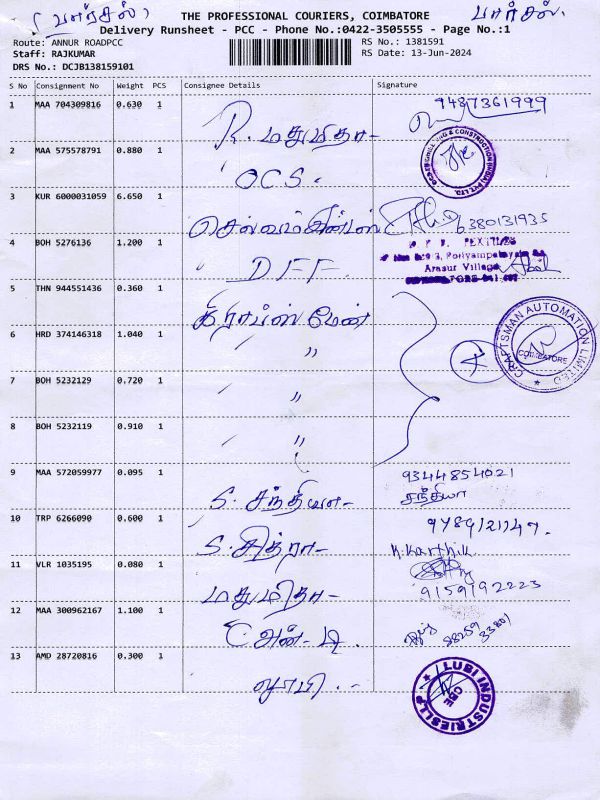 (பார்சல்)
THE PROFESSIONAL COURIERS, COIMBATORE
பார்சல்.
Delivery Runsheet - PCC - Phone No.:0422-3505555 - Page No.:1
Route: ANNUR ROADPCC
RS No.: 1381591
Staff: RAJKUMAR
RS Date: 13-Jun-2024
DRS No.: DCJB138159101
S No Consignment No Weight PCS Consignee Details Signature
1 MAA 704309816 0.630 1
9487361999
R. மதுமிதா -
2 MAA 575578791 0.880 1
OCS.
3 KUR 6000031059 6.650 1
6380131935
4 BOH 5276136 1.200 1
D.F.F.
Arasur Village
5 THN 944551436 0.360 1
கிராப்ஸ் மேன்
6 HRD 374146318 1.040 1
"
4
CRAFTSMAN AUTOMATION LIMITED
COIMBATORE
7 BOH 5232129 0.720 1
"
8 BOH 5232119 0.910 1
"
9 MAA 572059977 0.095 1
9344854021
S. சந்தியா -
சந்தியா
10 TRP 6266090 0.600 1
9789121147.
S. சித்ரா -
K. Karthik
11 VLR 1035195 0.080 1
மதுமிதா -
9159192223
12 MAA 300962167 1.100 1
என் - டி
98259
33801
13 AMD 28720816 0.300 1
லூபி . -
LUBI INDUSTRIES LLP
CBE